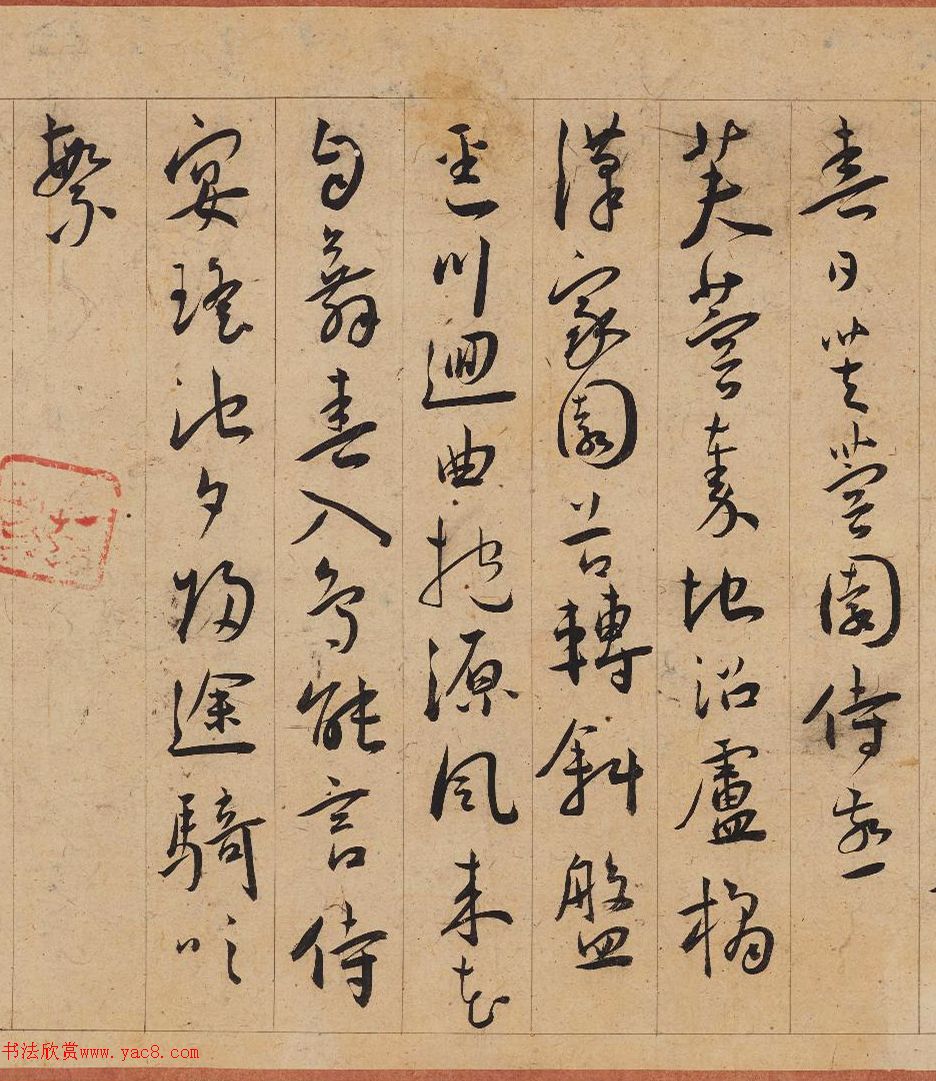 春日芙蓉園侍宴
芙蓉秦地沼盧橘
漢家園谷轉斜盤
徑川迴曲抱源風來花
自舞春入鳥能言侍
宴瑤池夕歸途騎吹
繁
书法欣赏www.yac8.com